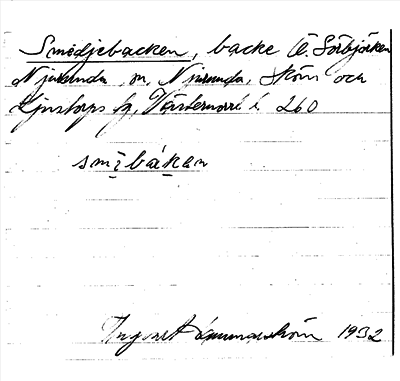 Smedjebacken, backe Ö. Sörbjörken
Njurunda sn, Njurunda, Sköns och
Ljustorps tg, Västernorrl. l. 260
smibákan
Ingvert Hammarström 1932